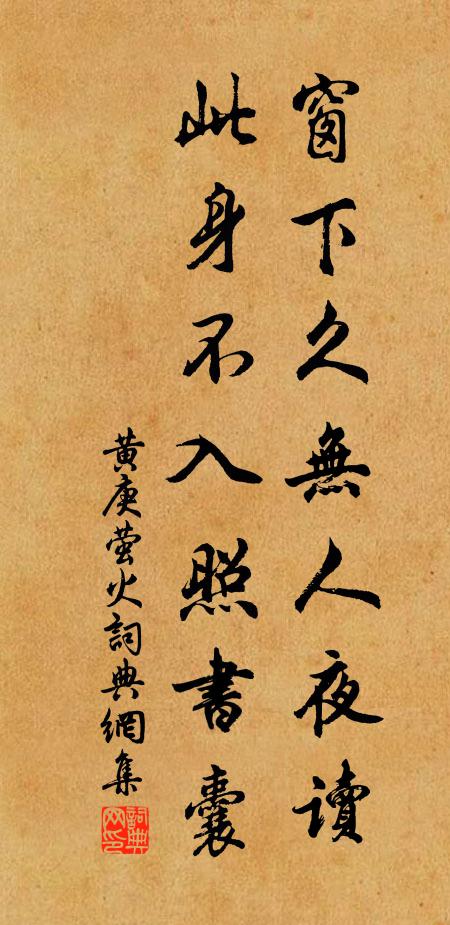 窗下久無人夜讀
此身不入照書囊
黄庚萤火詞典網集
詞典网印